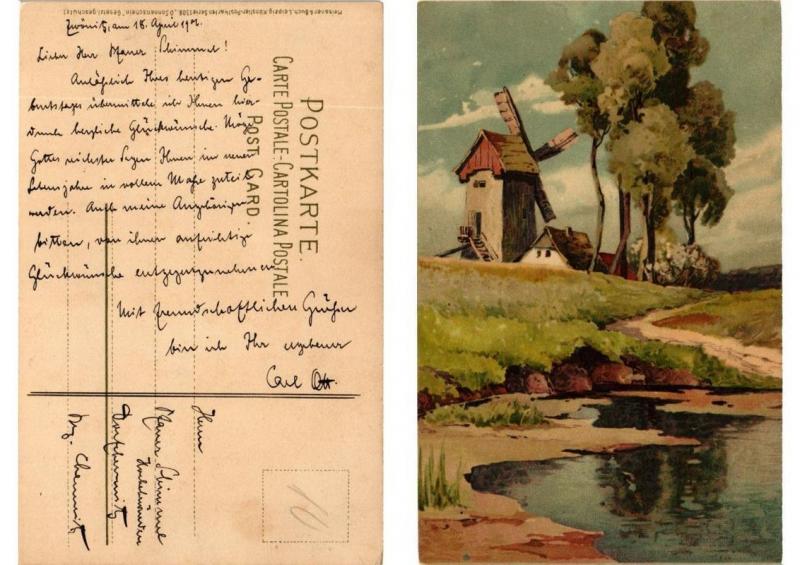 Meissner & Buch, Leipzig. Künstler-Postkarten Serie 1308. „O Sonnenschein" Gesetzl. geschützt
Zwönitz, am 18. April
Lieber Herr Schimmel!
Anläßlich Ihres heutigen Ge-
burtstages übermittele ich Ihnen hier-
durch herzliche Glückwünsche. Möge
Gottes reichster Segen Ihnen im neuen
Lebensjahre in vollem Maße zuteil
werden. Auch meine Angehörigen
bitten, von ihnen aufrichtige
Glückwünsche entgegenzunehmen.
Mit freundschaftlichen Grüßen
bin ich Ihr ergebener
Carl Ott.
POSTKARTE.
CARTE POSTALE-CARTOLINA POSTALE
POST CARD.
Herrn
Bez. Chemnitz
10